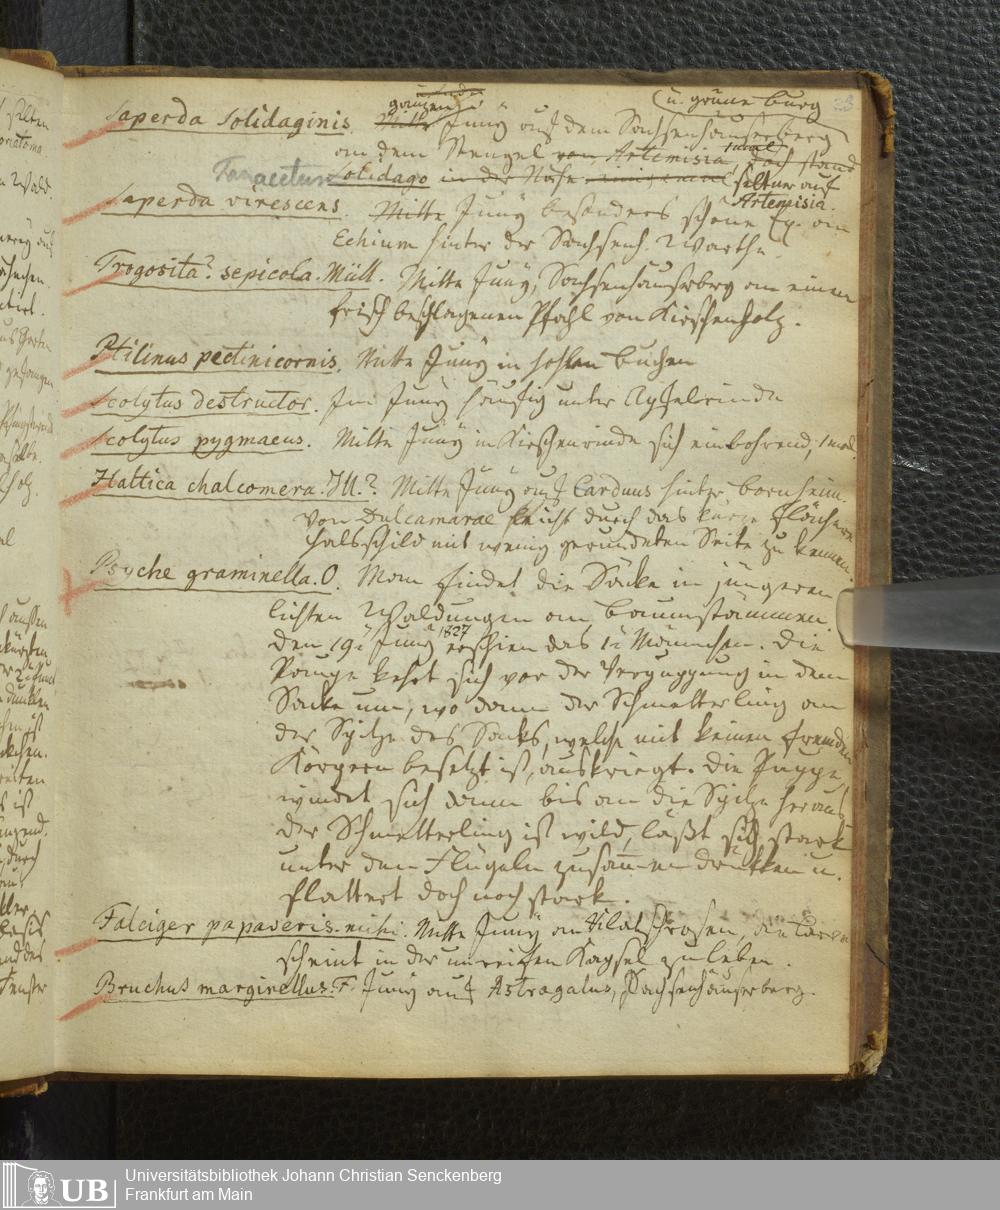 (u. grüne Burg 23
ganzen
Saperda Solidaginis. Mitte Juny auf dem Sachsenhäuserberg
an dem Stengel von Artemisia, doch stand
Tanacetum Solidago in der Nähe einigemal seltner auf
Artemisia.
Saperda virescens. Mitte Juny besonders schöne Ex. an
Echium hinter der Sachsenh. Warthe.
Trogosita? sepicola. Müll. Mitte Juny, Sachsenhäuserberg an einem
frisch beschlagenen Pfahl von Kirschenholz.
Ptilinus pectinicornis. Mitte Juny in hohlen Buchen
Scolytus destructor. Im Juny häufig unter Apfelrinde
Scolytus pygmaeus. Mitte Juny in Kirschenrinde sich einbohrend, 1 mal.
Haltica chalcomera. Ill.? Mitte Juny auf Carduus hinter Bornheim.
von Dulcamarae leicht durch das kurze flachere
Halsschild mit wenig gerundeten Seite zu kennen.
Psyche graminella. O. Man findet die Säcke in jüngeren
lichten Waldungen an Baumstämmen.
den 19. Juny 1827 erschien das 1. Männchen. Die
Raupe kehrt sich vor der Verpuppung in dem
Sacke um, wo dann der Schmetterling an
der Spitze des Sacks, welche mit keinen fremden
Körpern besetzt ist, auskriegt. Die Puppe
windet sich dann bis an die Spitze heraus
Der Schmetterling ist wild, läßt sich stark
unter den Flügeln zusammendrukken u.
flattert doch noch stark.
Falciger papaveris. mihi. Mitte Juny an Klatschrosen, die Larve
scheint in der unreifen Kapsel zu leben.
Bruchus marginellus. F. Juny auf Astragalus, Sachsenhäuserberg.
UB Universitätsbibliothek Johann Christian Senckenberg
Frankfurt am Main